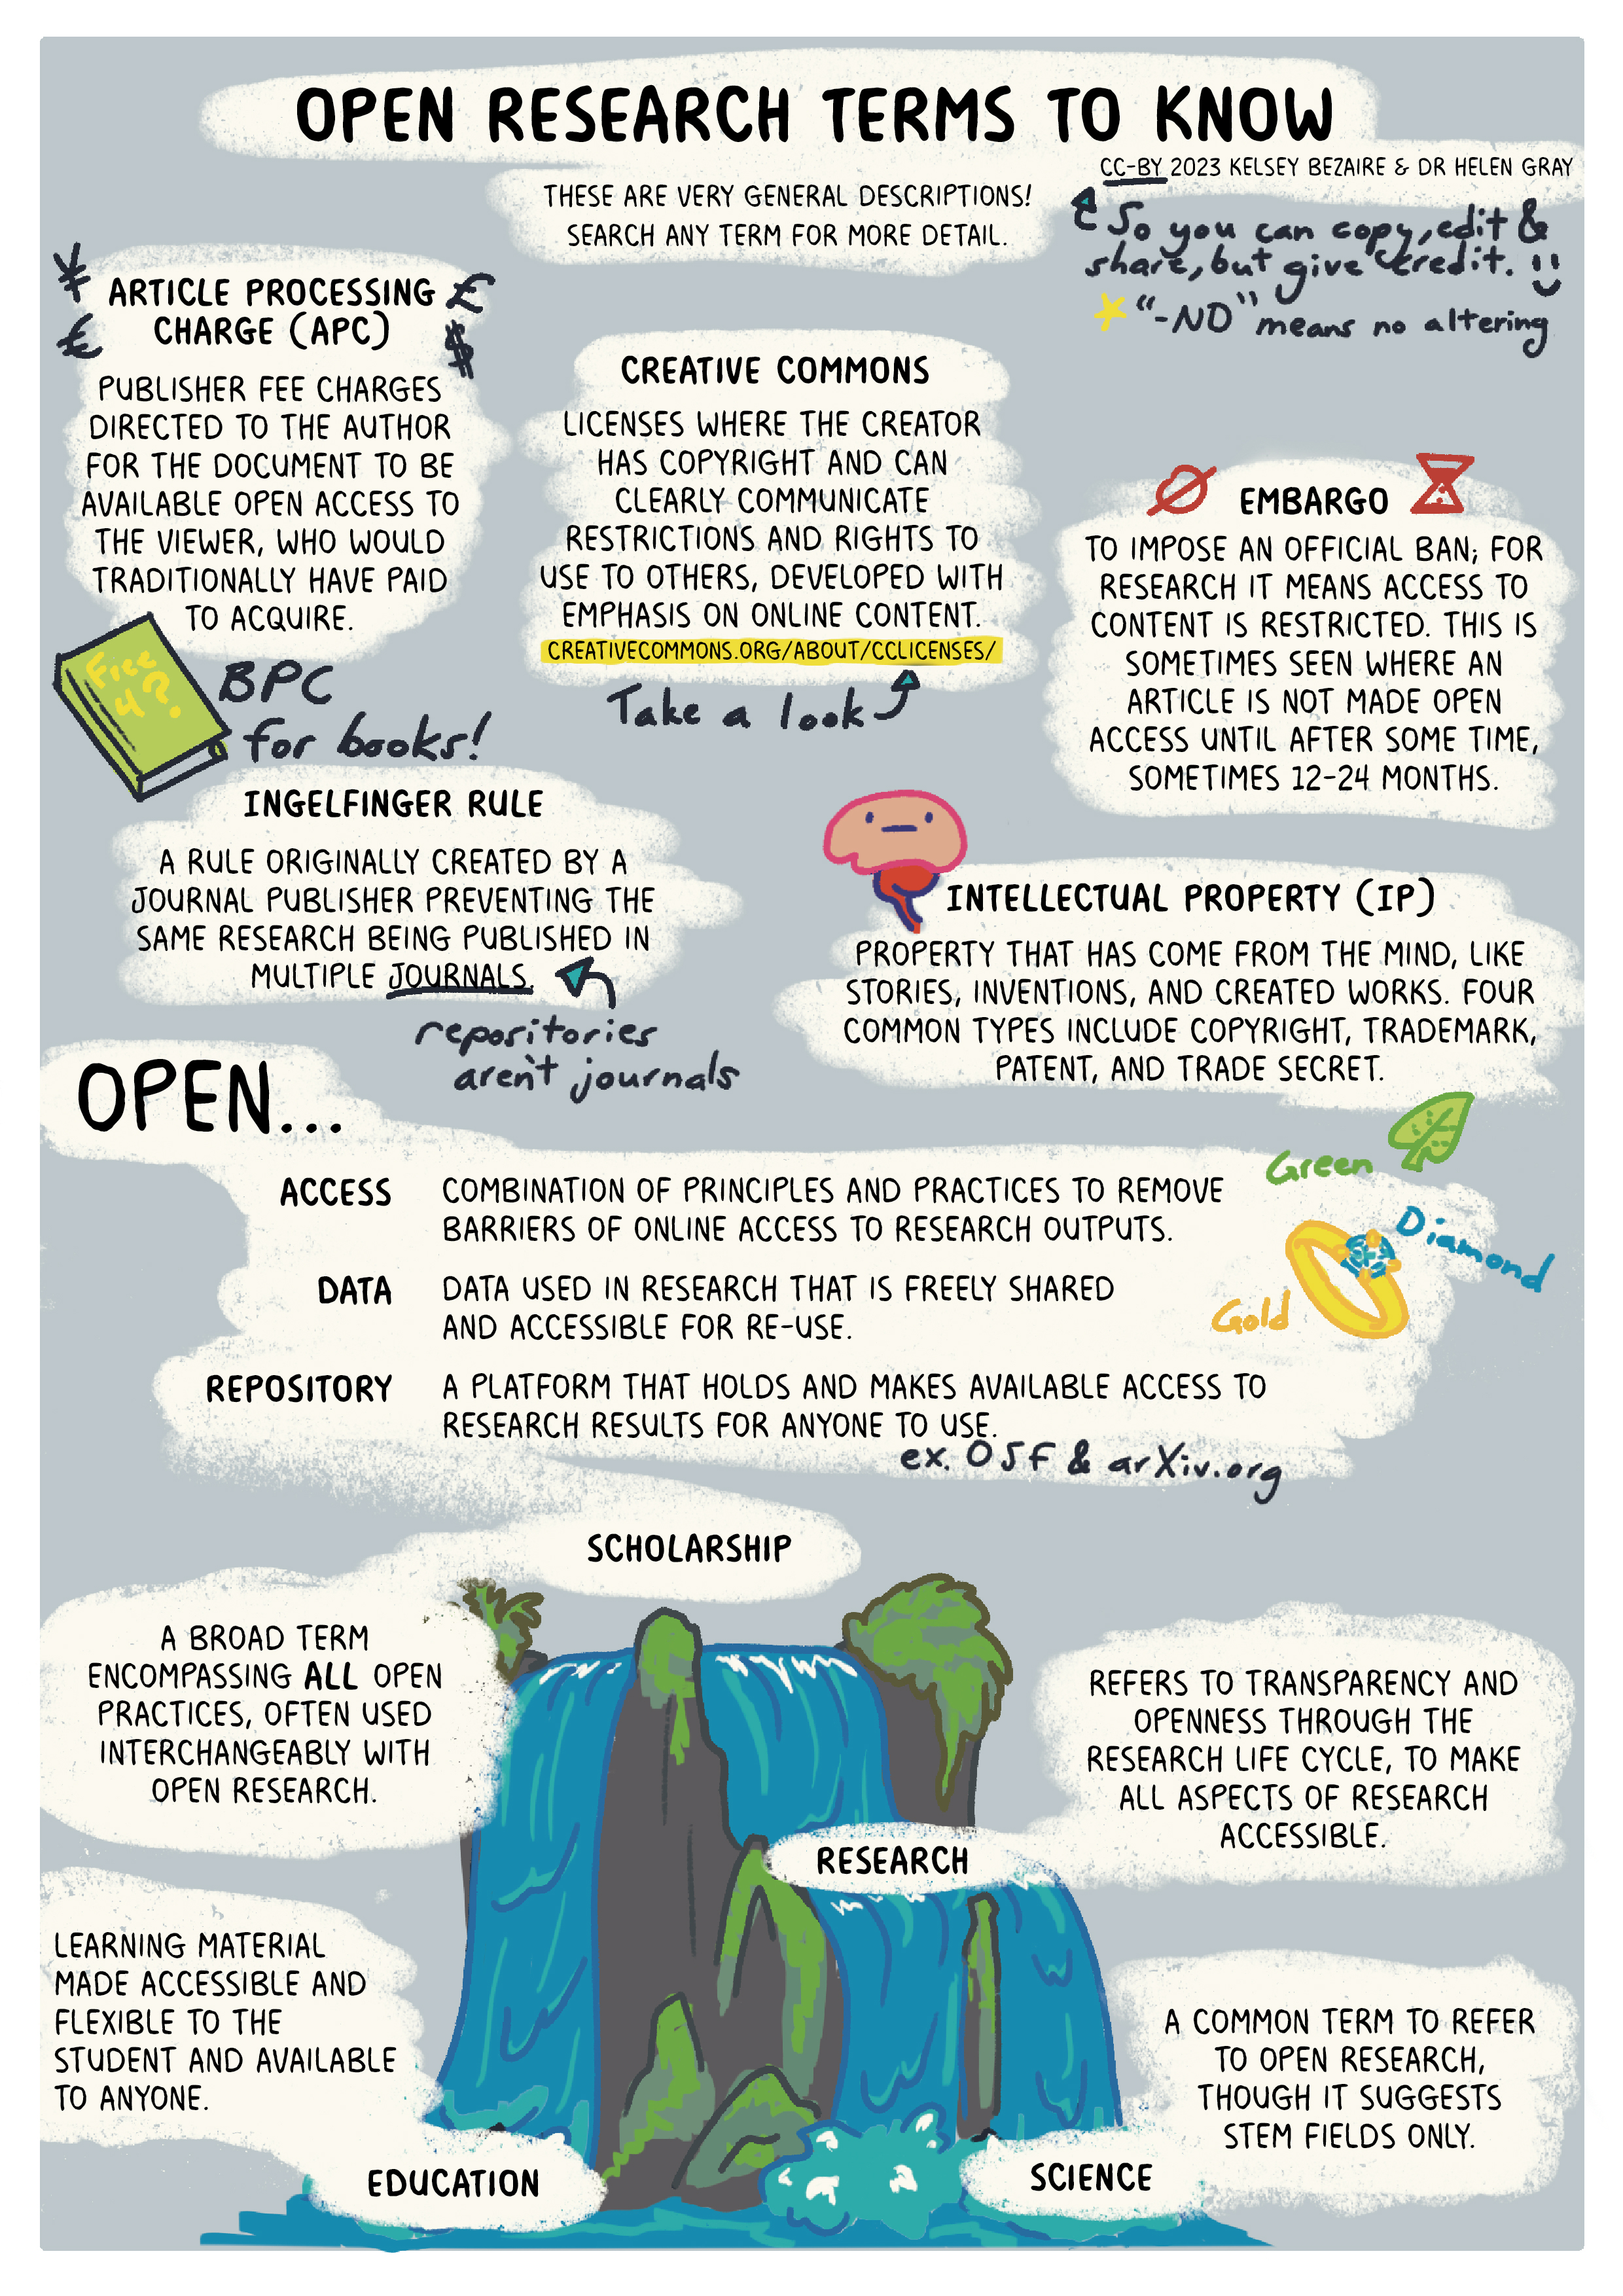 OPEN RESEARCH TERMS TO KNOW
CC-BY 2023 KELSEY BEZAIRE & DR HELEN GRAY
THESE ARE VERY GENERAL DESCRIPTIONS!
SEARCH ANY TERM FOR MORE DETAIL.
So you can copy, edit &
share, but give credit.
"-ND" means no altering
¥
£
€
$
ARTICLE PROCESSING
CHARGE (APC)
PUBLISHER FEE CHARGES
DIRECTED TO THE AUTHOR
FOR THE DOCUMENT TO BE
AVAILABLE OPEN ACCESS TO
THE VIEWER, WHO WOULD
TRADITIONALLY HAVE PAID
TO ACQUIRE.
Free
4 ?.
BPC
for books!
CREATIVE COMMONS
LICENSES WHERE THE CREATOR
HAS COPYRIGHT AND CAN
CLEARLY COMMUNICATE
RESTRICTIONS AND RIGHTS TO
USE TO OTHERS, DEVELOPED WITH
EMPHASIS ON ONLINE CONTENT.
CREATIVECOMMONS.ORG/ABOUT/CCLICENSES/
Take a look
EMBARGO
TO IMPOSE AN OFFICIAL BAN; FOR
RESEARCH IT MEANS ACCESS TO
CONTENT IS RESTRICTED. THIS IS
SOMETIMES SEEN WHERE AN
ARTICLE IS NOT MADE OPEN
ACCESS UNTIL AFTER SOME TIME,
SOMETIMES 12-24 MONTHS.
INGELFINGER RULE
A RULE ORIGINALLY CREATED BY A
JOURNAL PUBLISHER PREVENTING THE
SAME RESEARCH BEING PUBLISHED IN
MULTIPLE JOURNALS.
repositories
aren't journals
INTELLECTUAL PROPERTY (IP)
PROPERTY THAT HAS COME FROM THE MIND, LIKE
STORIES, INVENTIONS, AND CREATED WORKS. FOUR
COMMON TYPES INCLUDE COPYRIGHT, TRADEMARK,
PATENT, AND TRADE SECRET.
OPEN...
ACCESS
COMBINATION OF PRINCIPLES AND PRACTICES TO REMOVE
BARRIERS OF ONLINE ACCESS TO RESEARCH OUTPUTS.
Green
Diamond
Gold
DATA
DATA USED IN RESEARCH THAT IS FREELY SHARED
AND ACCESSIBLE FOR RE-USE.
REPOSITORY
A PLATFORM THAT HOLDS AND MAKES AVAILABLE ACCESS TO
RESEARCH RESULTS FOR ANYONE TO USE.
ex. OSF & arXiv.org
SCHOLARSHIP
A BROAD TERM
ENCOMPASSING ALL OPEN
PRACTICES, OFTEN USED
INTERCHANGEABLY WITH
OPEN RESEARCH.
RESEARCH
REFERS TO TRANSPARENCY AND
OPENNESS THROUGH THE
RESEARCH LIFE CYCLE, TO MAKE
ALL ASPECTS OF RESEARCH
ACCESSIBLE.
LEARNING MATERIAL
MADE ACCESSIBLE AND
FLEXIBLE TO THE
STUDENT AND AVAILABLE
TO ANYONE.
EDUCATION
A COMMON TERM TO REFER
TO OPEN RESEARCH,
THOUGH IT SUGGESTS
STEM FIELDS ONLY.
SCIENCE